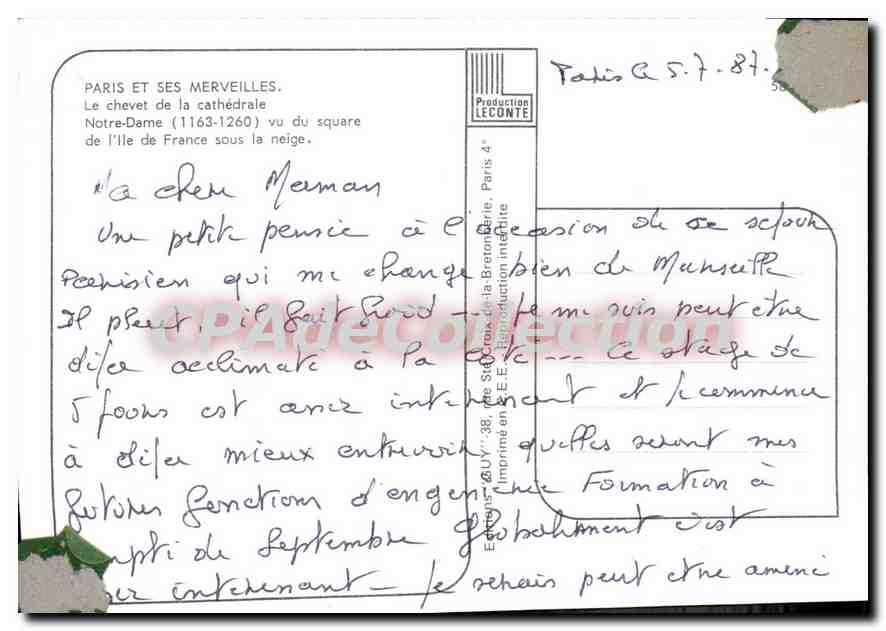 PARIS ET SES MERVEILLES.
Le chevet de la cathédrale
Notre-Dame (1163-1260) vu du square
de l'Ile de France sous la neige.
Production
LECONTE
Paris le 5.7.87.
Editions "GUY" 38, rue Ste Croix-de-la-Bretonnerie, Paris 4e
Imprimé en C.E.E. Reproduction interdite
Ma chere Maman
Une petite pensée à l'occasion de ce sejour
Parisien qui me change bien de Marseille
Il pleut, il fait froid --- Je me suis peut etre
deja acclimaté à la cote --- Ce stage de
5 jours est assez interessant et je commence
à deja mieux entrevoir quelles seront mes
futures fonctions d'engenieur Formation à
compter de Septembre Globalement c'est
assez interessant - Je serais peut etre amené
CPAdeCollection